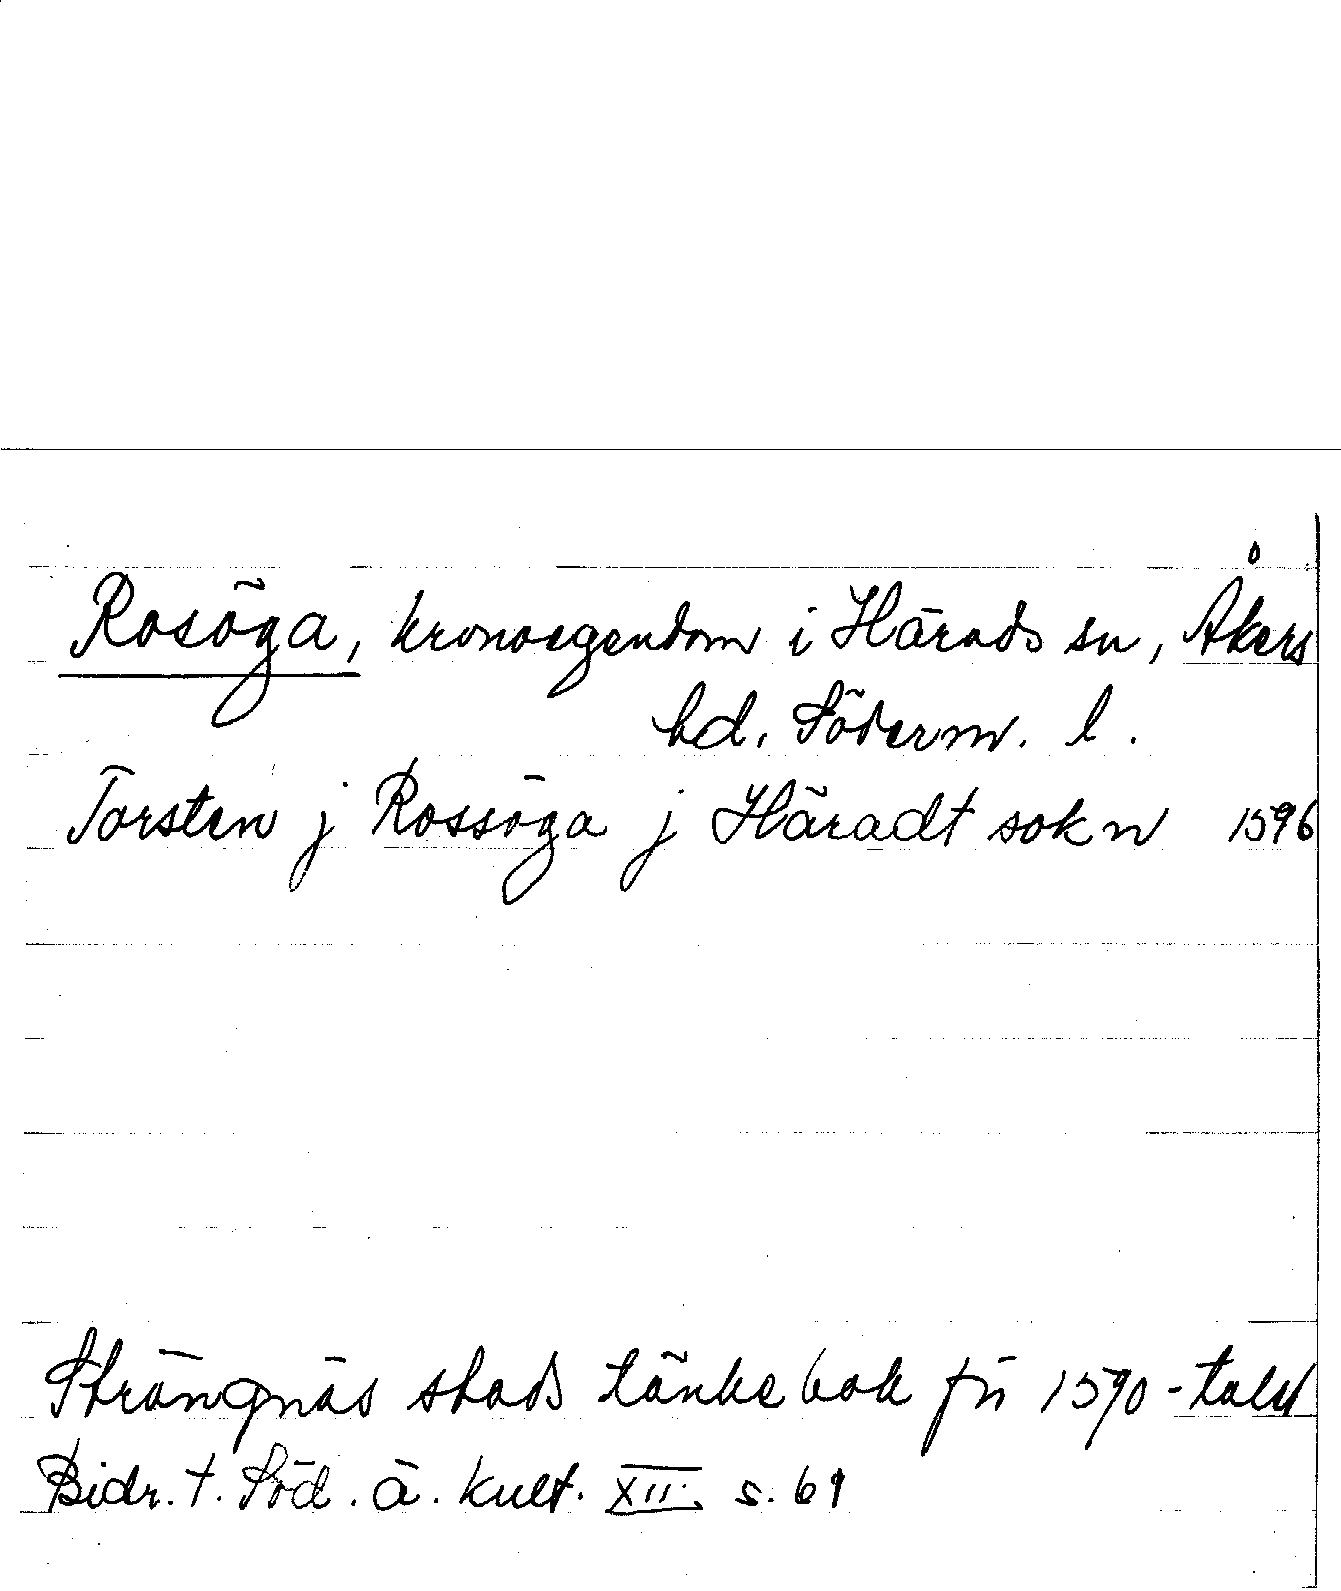 Rosöga, kronoegendom i Härads sn, Åkers
hd, Söderm. l.
Torsten j Rossöga j Häradt sokn 1596
Strängnäs stads tänkebok fr 1590-talet
Bidr. t. Söd. ä. kult. XII s. 61